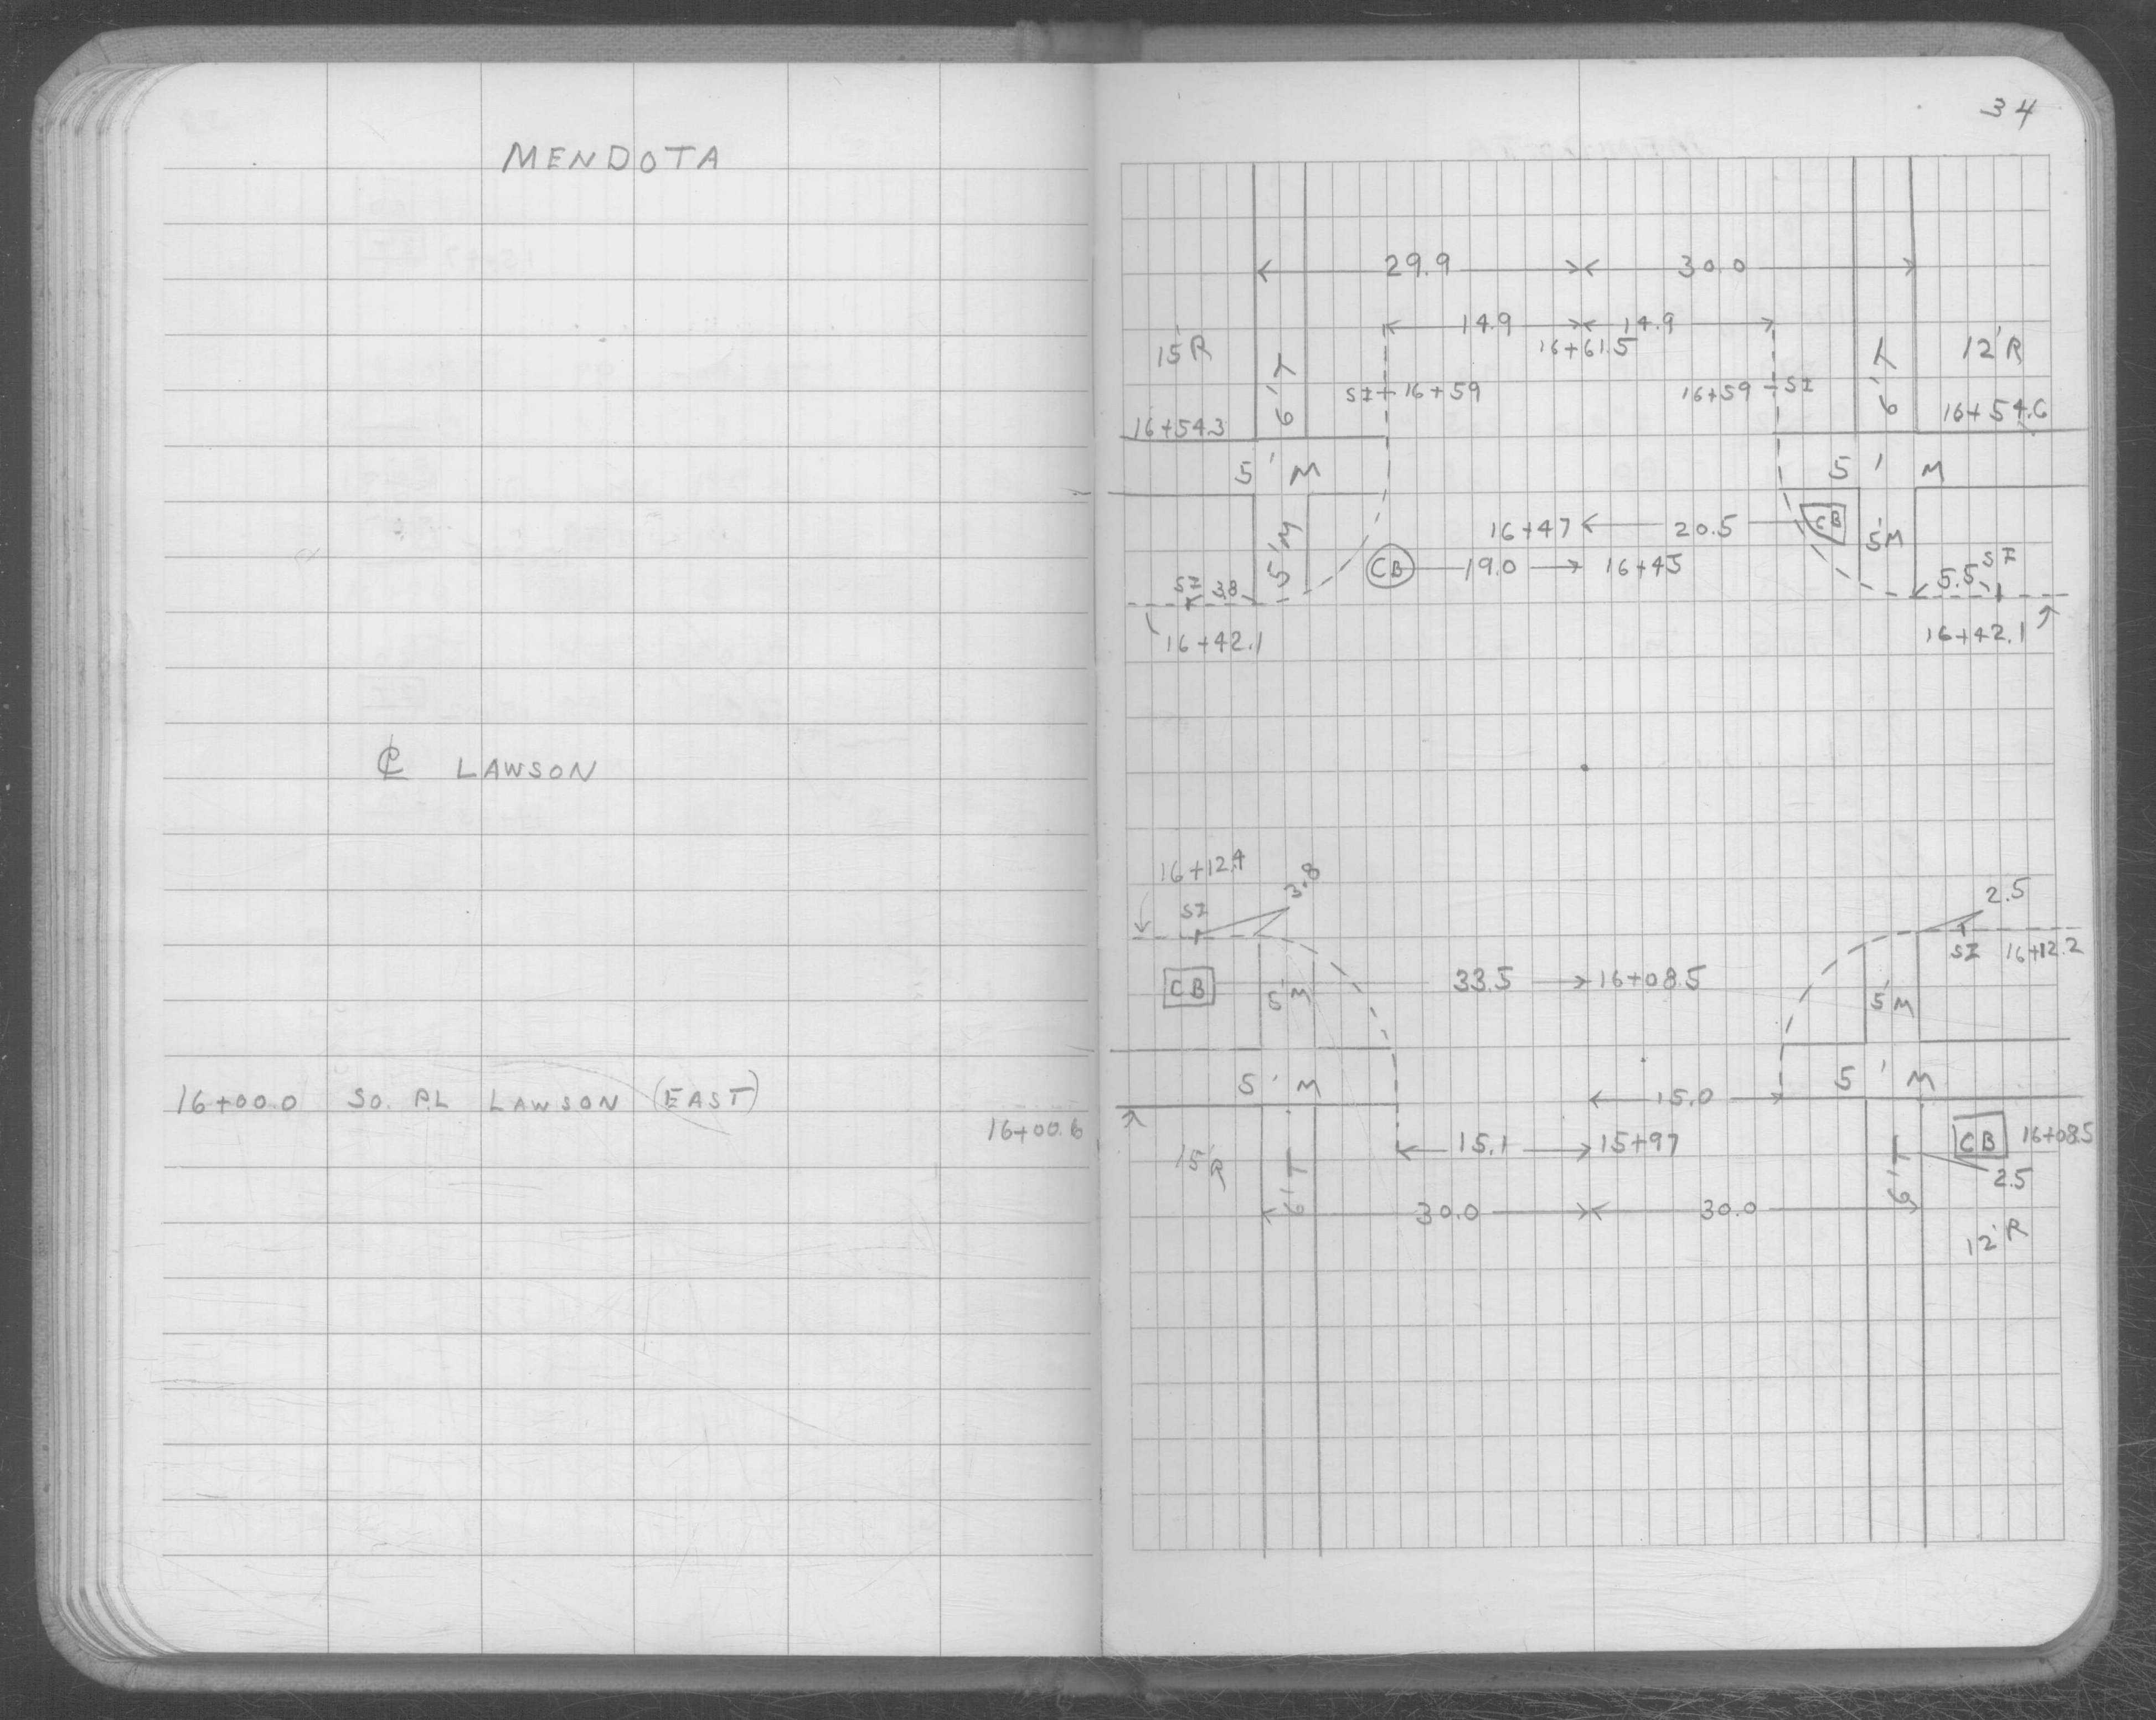 MENDOTA
℄ LAWSON
16+00.0 SO. P.L LAWSON (EAST)
16+00.6
34
29.9 30.0
14.9 14.9
16+61.5
15'R 6'T 6'T 12'R
SI 16+59 16+59 SI
16+54.3 16+54.6
5' M 5' M
16+47 20.5 CB
5'M 5'M
CB 19.0 16+45
SI 3.8 5.5 SI
16+42.1 16+42.1
16+12.4 3.8
SI 2.5
SI 16+12.2
CB 5'M 33.5 16+08.5 5'M
5' M 5' M
15.0
15.1 15+97 CB 16+08.5
15'R 6'T 6'T 2.5
30.0 30.0
12'R